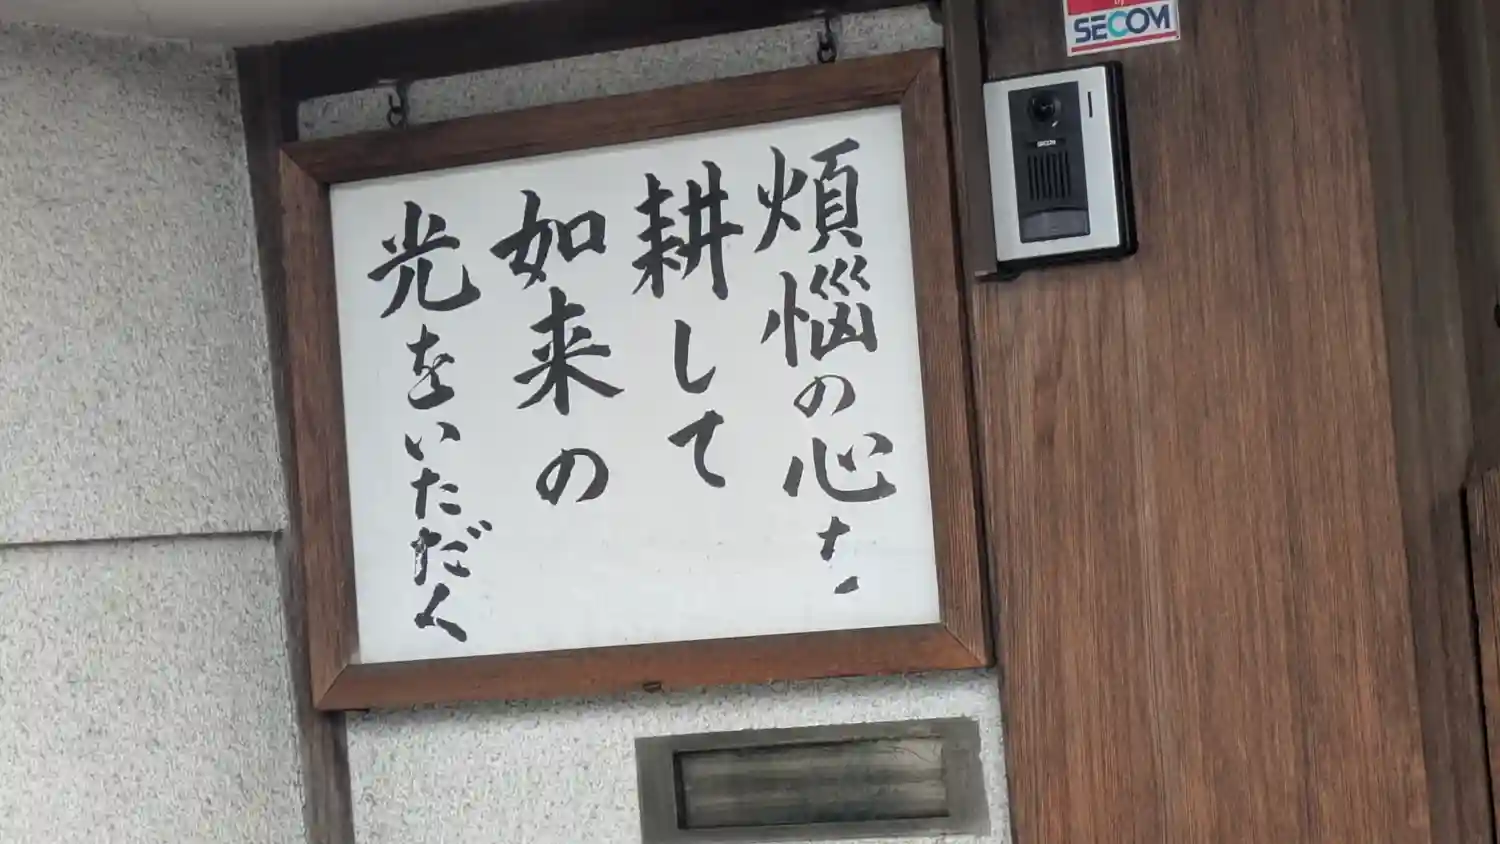 煩悩の心を
耕して
如来の
光をいただく
SECOM
SECOM